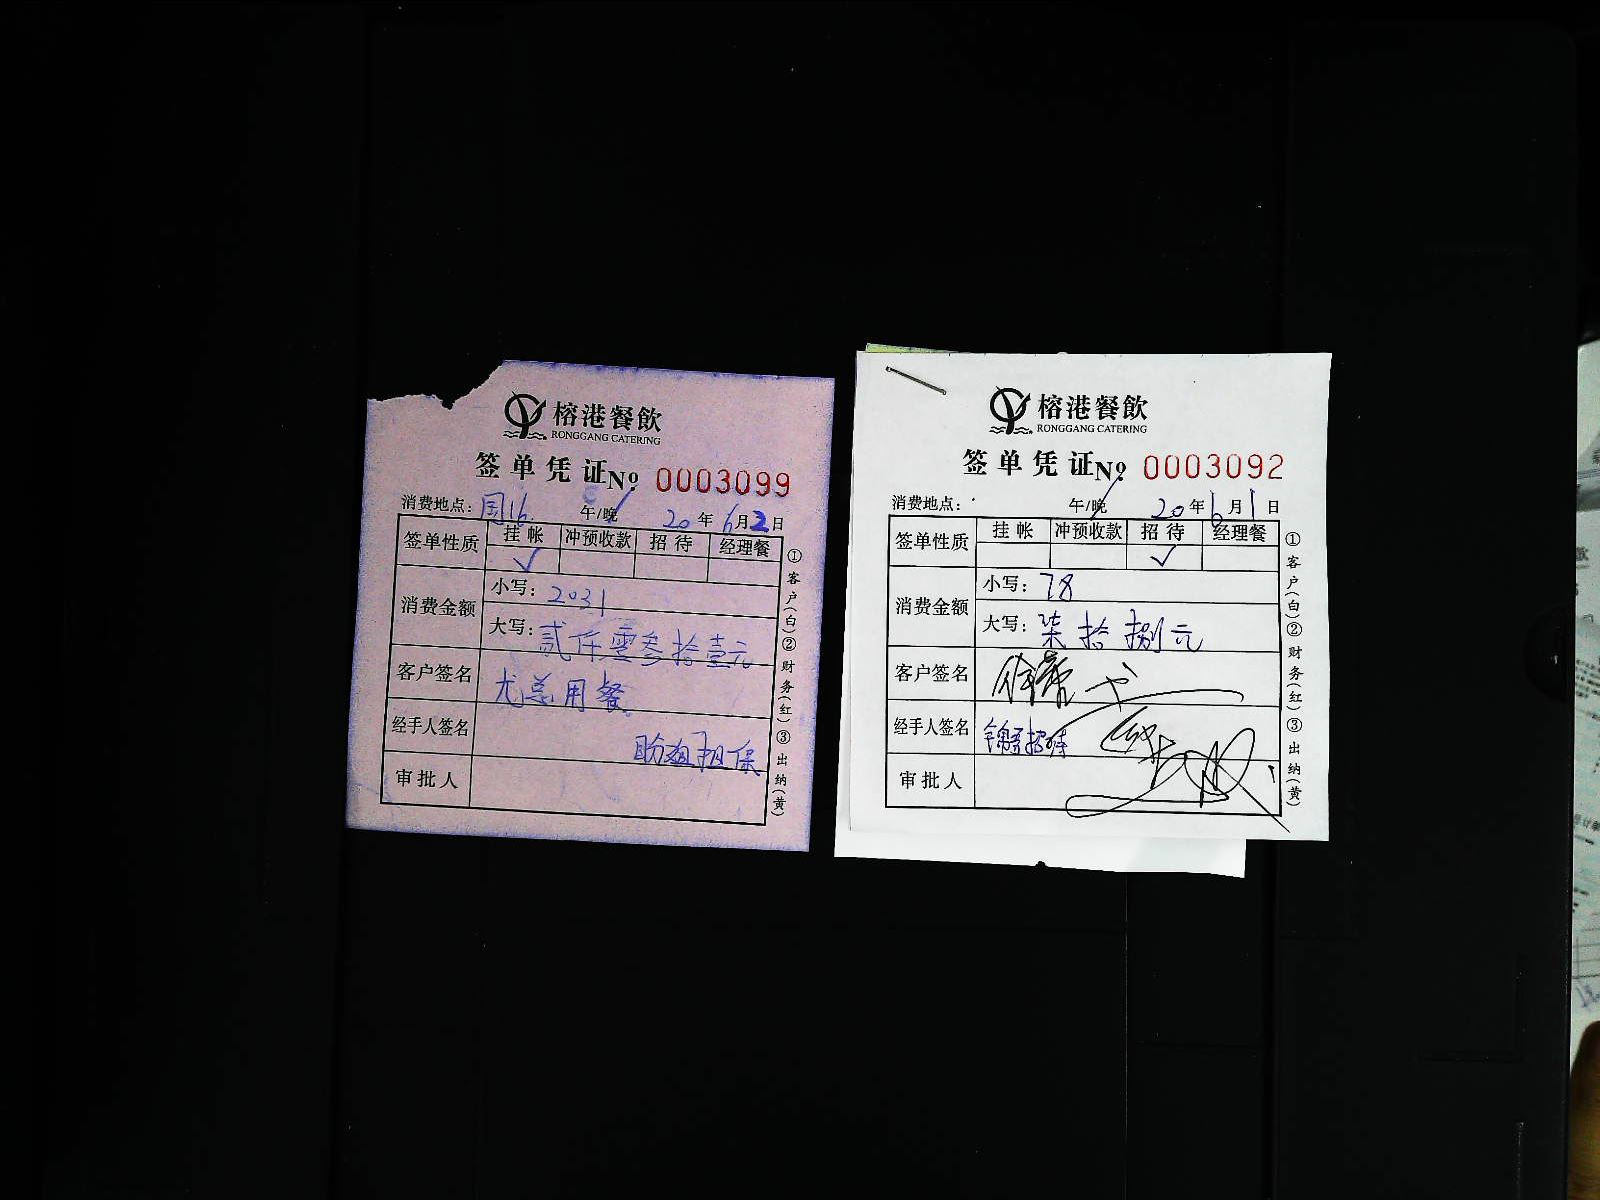 榕港餐飲
RONGGANG CATERING
签单凭证 № 0003099
消费地点：国16 午/晚 20年6月2日
签单性质 挂帐 冲预收款 招待 经理餐
✓
消费金额 小写：2031
大写：贰仟零叁拾壹元
客户签名 尤总用餐
经手人签名
担保
审批人
①客户（白）②财务（红）③出纳（黄）
榕港餐飲
RONGGANG CATERING
签单凭证 № 0003092
消费地点： 午/晚 20年6月1日
签单性质 挂帐 冲预收款 招待 经理餐
✓
消费金额 小写：78
大写：柒拾捌元
客户签名
经手人签名 招待
审批人
①客户（白）②财务（红）③出纳（黄）